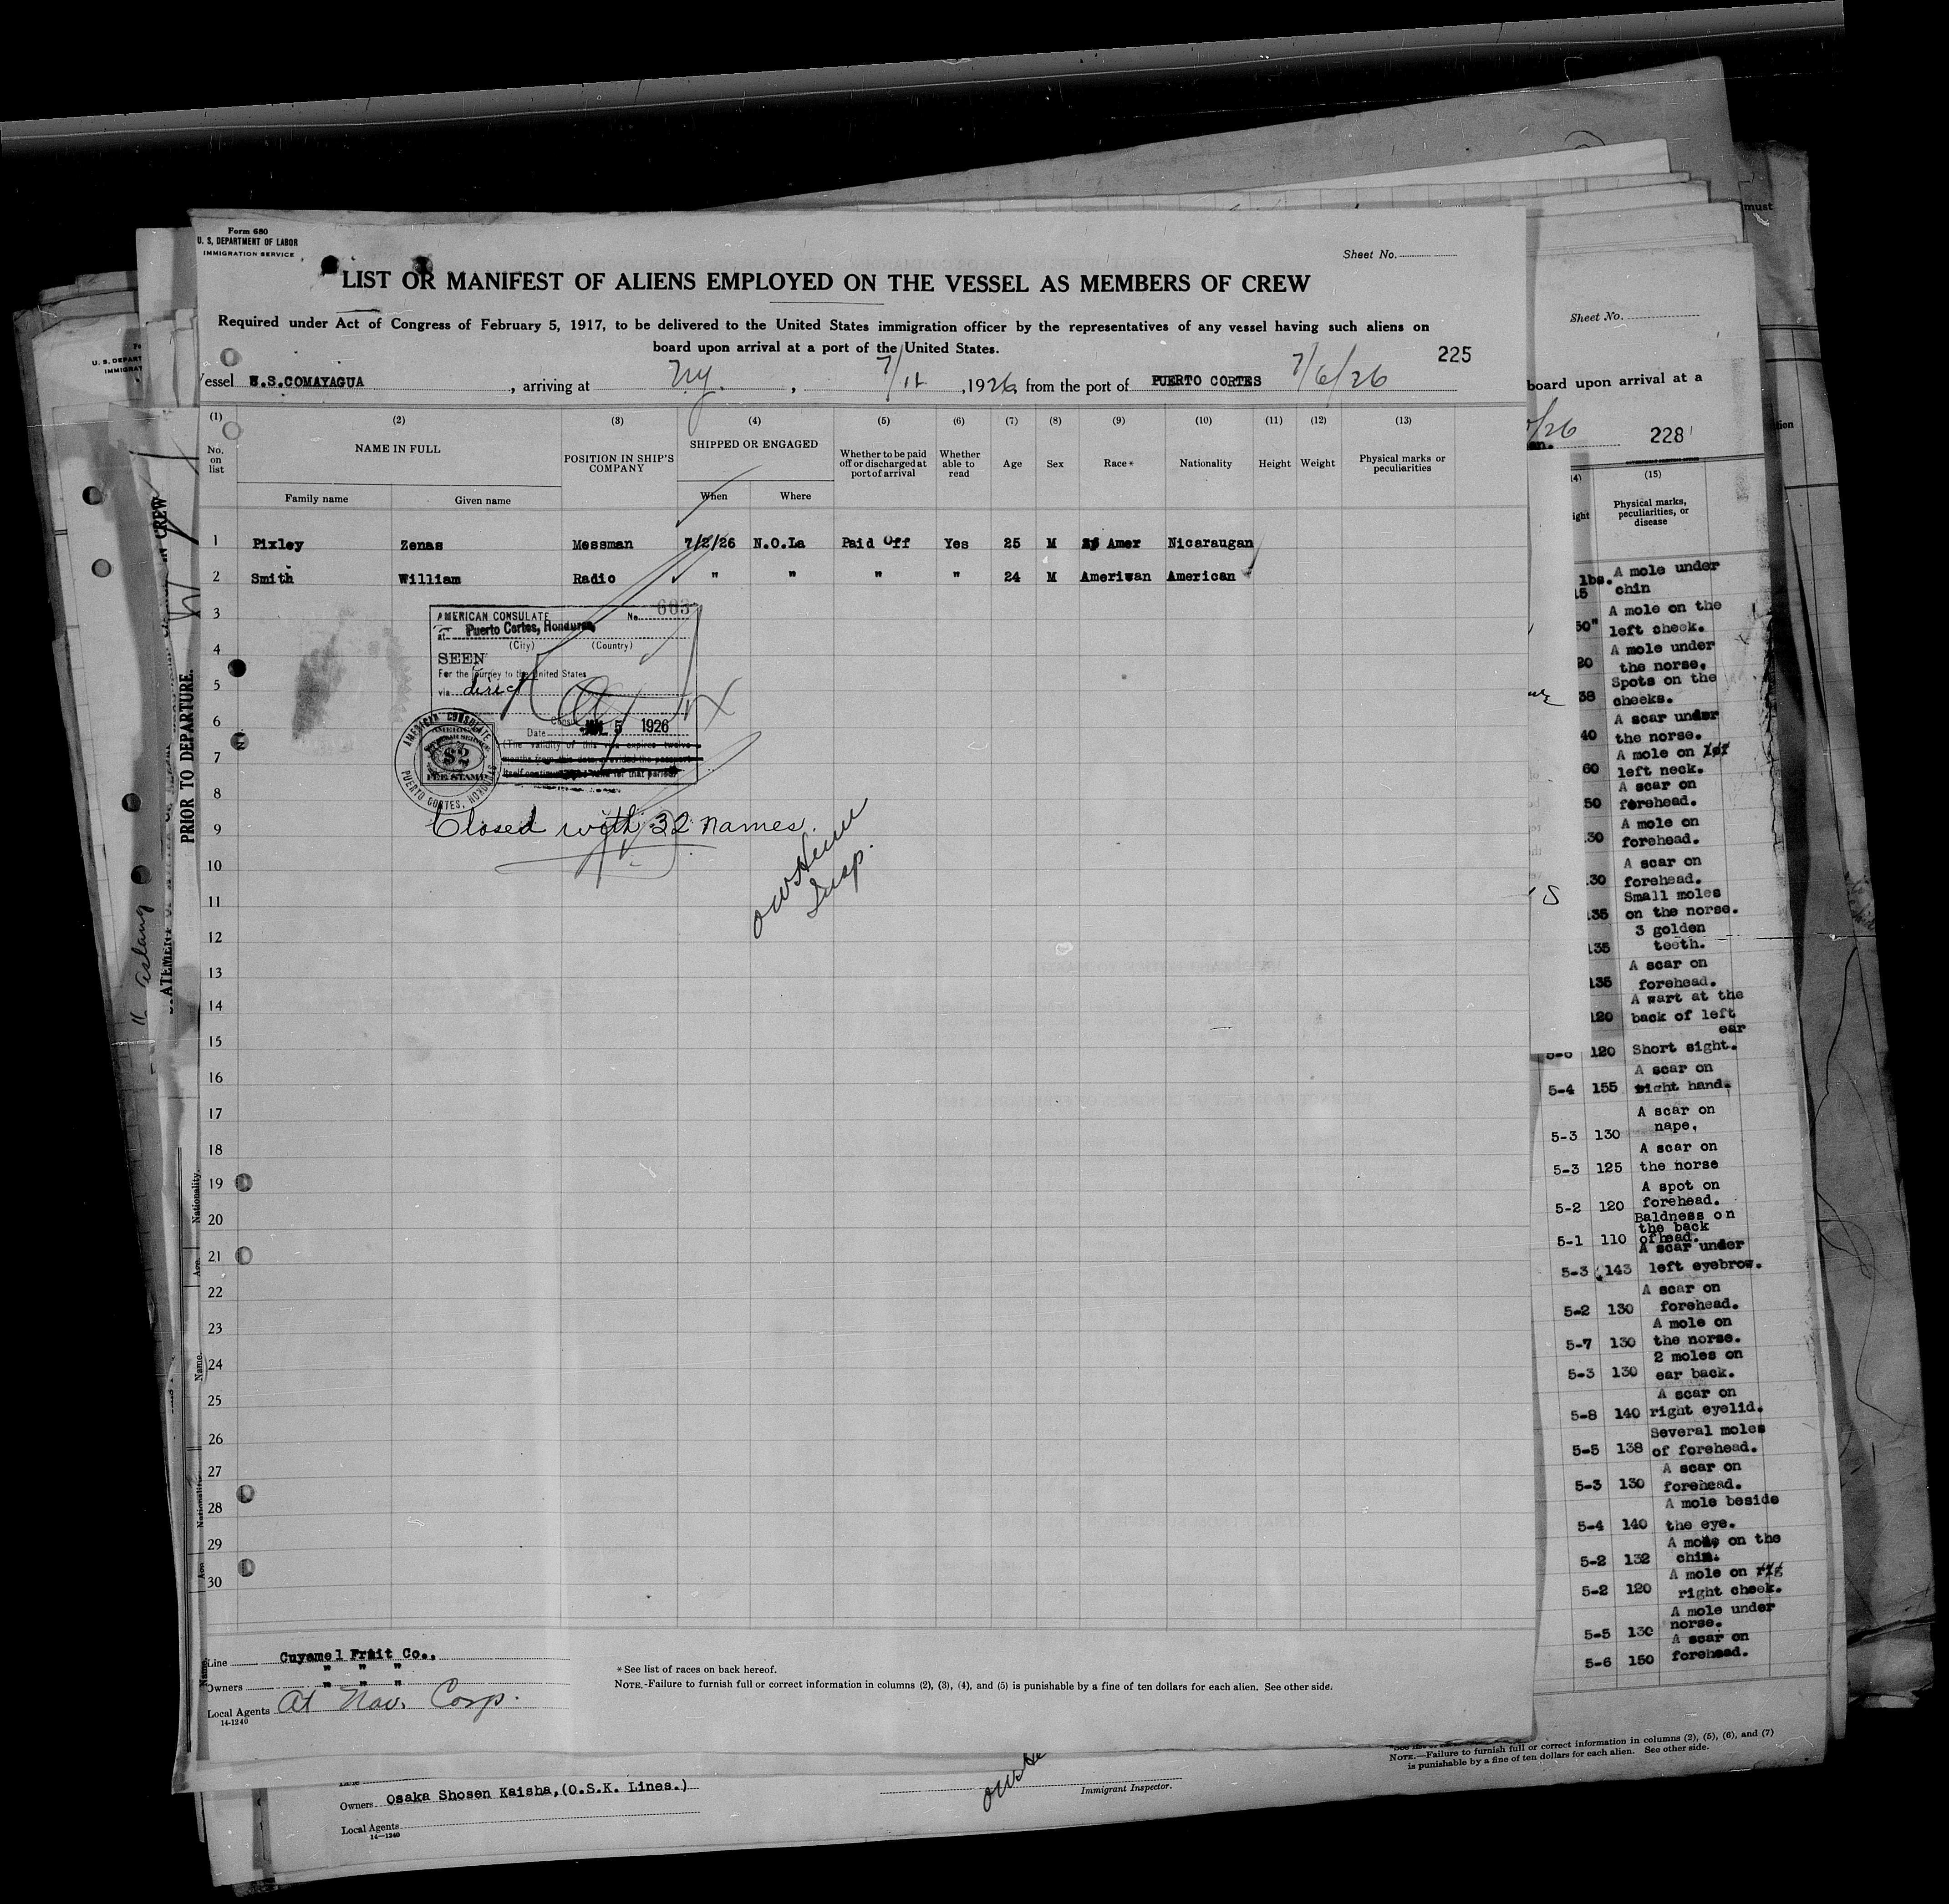 Form 680
U. S. DEPARTMENT OF LABOR
IMMIGRATION SERVICE
Sheet No.
LIST OR MANIFEST OF ALIENS EMPLOYED ON THE VESSEL AS MEMBERS OF CREW
Required under Act of Congress of February 5, 1917, to be delivered to the United States immigration officer by the representatives of any vessel having such aliens on
board upon arrival at a port of the United States.
225
S.S.COMAYAGUA , arriving at N.Y. , 7/11 , 1926, from the port of PUERTO CORTES 7/6/26
(1) (2) (3) (4) (5) (6) (7) (8) (9) (10) (11) (12) (13)
No. on list
NAME IN FULL
Family name Given name
POSITION IN SHIP'S COMPANY
SHIPPED OR ENGAGED
When Where
Whether to be paid off or discharged at port of arrival
Whether able to read
Age Sex Race* Nationality Height Weight
Physical marks or peculiarities
1 Pixley Zenas Messman 7/2/26 N.O.La Paid Off Yes 25 M Amer Nicaraugan
2 Smith William Radio " " " " 24 M Ameriwan American
3
4
5
6
7
8
9
10
11
12
13
14
15
16
17
18
19
20
21
22
23
24
25
26
27
28
29
30
AMERICAN CONSULATE No. 603
at Puerto Cortes, Honduras,
(City) (Country)
SEEN
For the journey to the United States
via direct
Consul
Date 5 1926
(The validity of this visa expires twelve
months from this date, provided the passport
itself continues to be valid for that period)
AMERICAN CONSULATE
PUERTO CORTES, HONDURAS
$2
FEE STAMP
Closed with 32 names.
Insp.
Line Cuyamel Fruit Co.,
Owners " " "
Local Agents At Nav. Corp.
14-1240
*See list of races on back hereof.
NOTE.-Failure to furnish full or correct information in columns (2), (3), (4), and (5) is punishable by a fine of ten dollars for each alien. See other side.
must
Sheet No.
board upon arrival at a
/26
228
(15)
Physical marks, peculiarities, or disease
lbs. A mole under
chin
A mole on the
left cheek.
A mole under
the norse.
Spots on the
38 cheeks.
A scar under
40 the norse.
A mole on
60 left neck.
A scar on
50 forehead.
A mole on
30 forehead.
A scar on
30 forehead.
Small moles
135 on the norse.
3 golden
135 teeth.
A scar on
135 forehead.
A wart at the
120 back of left
ear
120 Short sight.
A scar on
5-4 155 right hand.
A scar on
5-3 130 nape.
A scar on
5-3 125 the norse
A spot on
5-2 120 forehead.
Baldness on
the back
5-1 110 of head.
A scar under
5-3 143 left eyebrow.
A scar on
5-2 130 forehead.
A mole on
5-7 130 the norse.
2 moles on
5-3 130 ear back.
A scar on
5-8 140 right eyelid.
Several moles
5-5 138 of forehead.
A scar on
5-3 130 forehead.
A mole beside
5-4 140 the eye.
A mole on the
5-2 132 chin.
A mole on
5-2 120 right cheek.
A mole under
5-5 130 norse.
A scar on
5-6 150 forehead.
NOTE.—Failure to furnish full or correct information in columns (2), (5), (6), and (7)
is punishable by a fine of ten dollars for each alien. See other side.
Owners Osaka Shosen Kaisha,(O.S.K. Lines.)
Local Agents
14-1240
Immigrant Inspector.
PRIOR TO DEPARTURE.
IN CREW
Nationality.
Age.
Name.